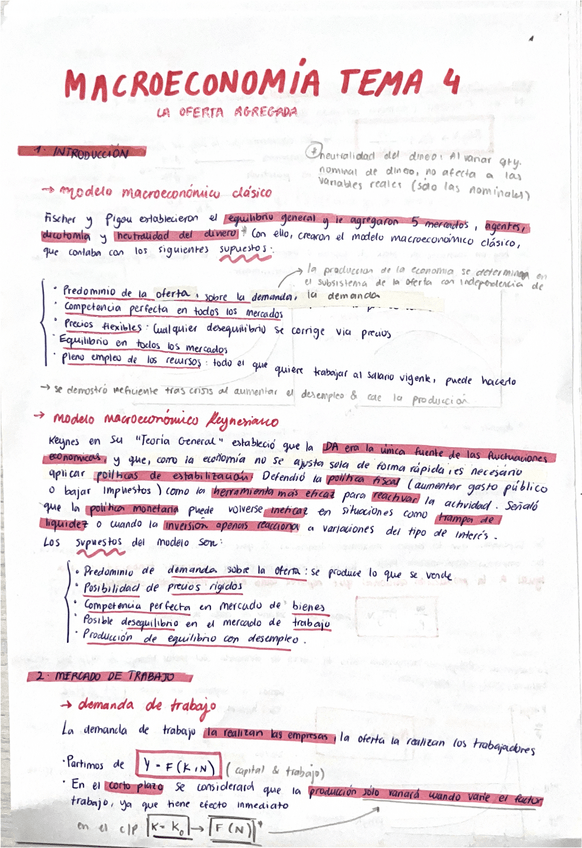 MACROECONOMÍA TEMA 4
LA OFERTA AGREGADA
1. INTRODUCCIÓN
* neutralidad del dinero: Al variar qty.
nominal de dinero, no afecta a las
variables reales (solo las nominales)
→ modelo macroeconómico clásico
Fischer y Pigou establecieron el equilibrio general y le agregaron 5 mercados, agentes,
dicotomía y neutralidad del dinero* Con ello, crearon el modelo macroeconómico clásico,
que contaban con los siguientes supuestos:
→ la produccion de la economia se determina en
el subsistema de la oferta con independencia de
la demanda
· Predominio de la oferta, sobre la demanda,
· Competencia perfecta en todos los mercados
· Precios flexibles: Cualquier desequilibrio se corrige via precios
· Equilibrio en todos los mercados
· Pleno empleo de los recursos: todo el que quiere trabajar al salario vigente, puede hacerlo
→ se demostró ineficiente tras crisis al aumentar el desempleo & cae la producción
→ modelo macroeconómico Keynesiano
Keynes en su "Teoría General" estableció que la DA era la única fuente de las fluctuaciones
económicas y que, como la economía no se ajusta sola de forma rápida, es necesario
aplicar políticas de estabilización. Defendió la política fiscal (aumentar gasto público
o bajar impuestos) como la herramienta más eficaz para reactivar la actividad. Señaló
que la política monetaria puede volverse ineficaz en situaciones como trampa de
liquidez o cuando la inversión apenas reacciona a variaciones del tipo de interés.
Los supuestos del modelo son:
· Predominio de demanda sobre la oferta: se produce lo que se vende
· Posibilidad de precios rígidos
· Competencia perfecta en mercado de bienes
· Posible desequilibrio en el mercado de trabajo
· Producción de equilibrio con desempleo.
2. MERCADO DE TRABAJO
→ demanda de trabajo
La demanda de trabajo la realizan las empresas, la oferta la realizan los trabajadores
· Partimos de Y = F(K,N) (capital & trabajo)
· En el corto plazo se considerará que la producción solo variará cuando varíe el factor
trabajo, ya que tiene efecto inmediato
en el c/p K = K₀ → F(N)*